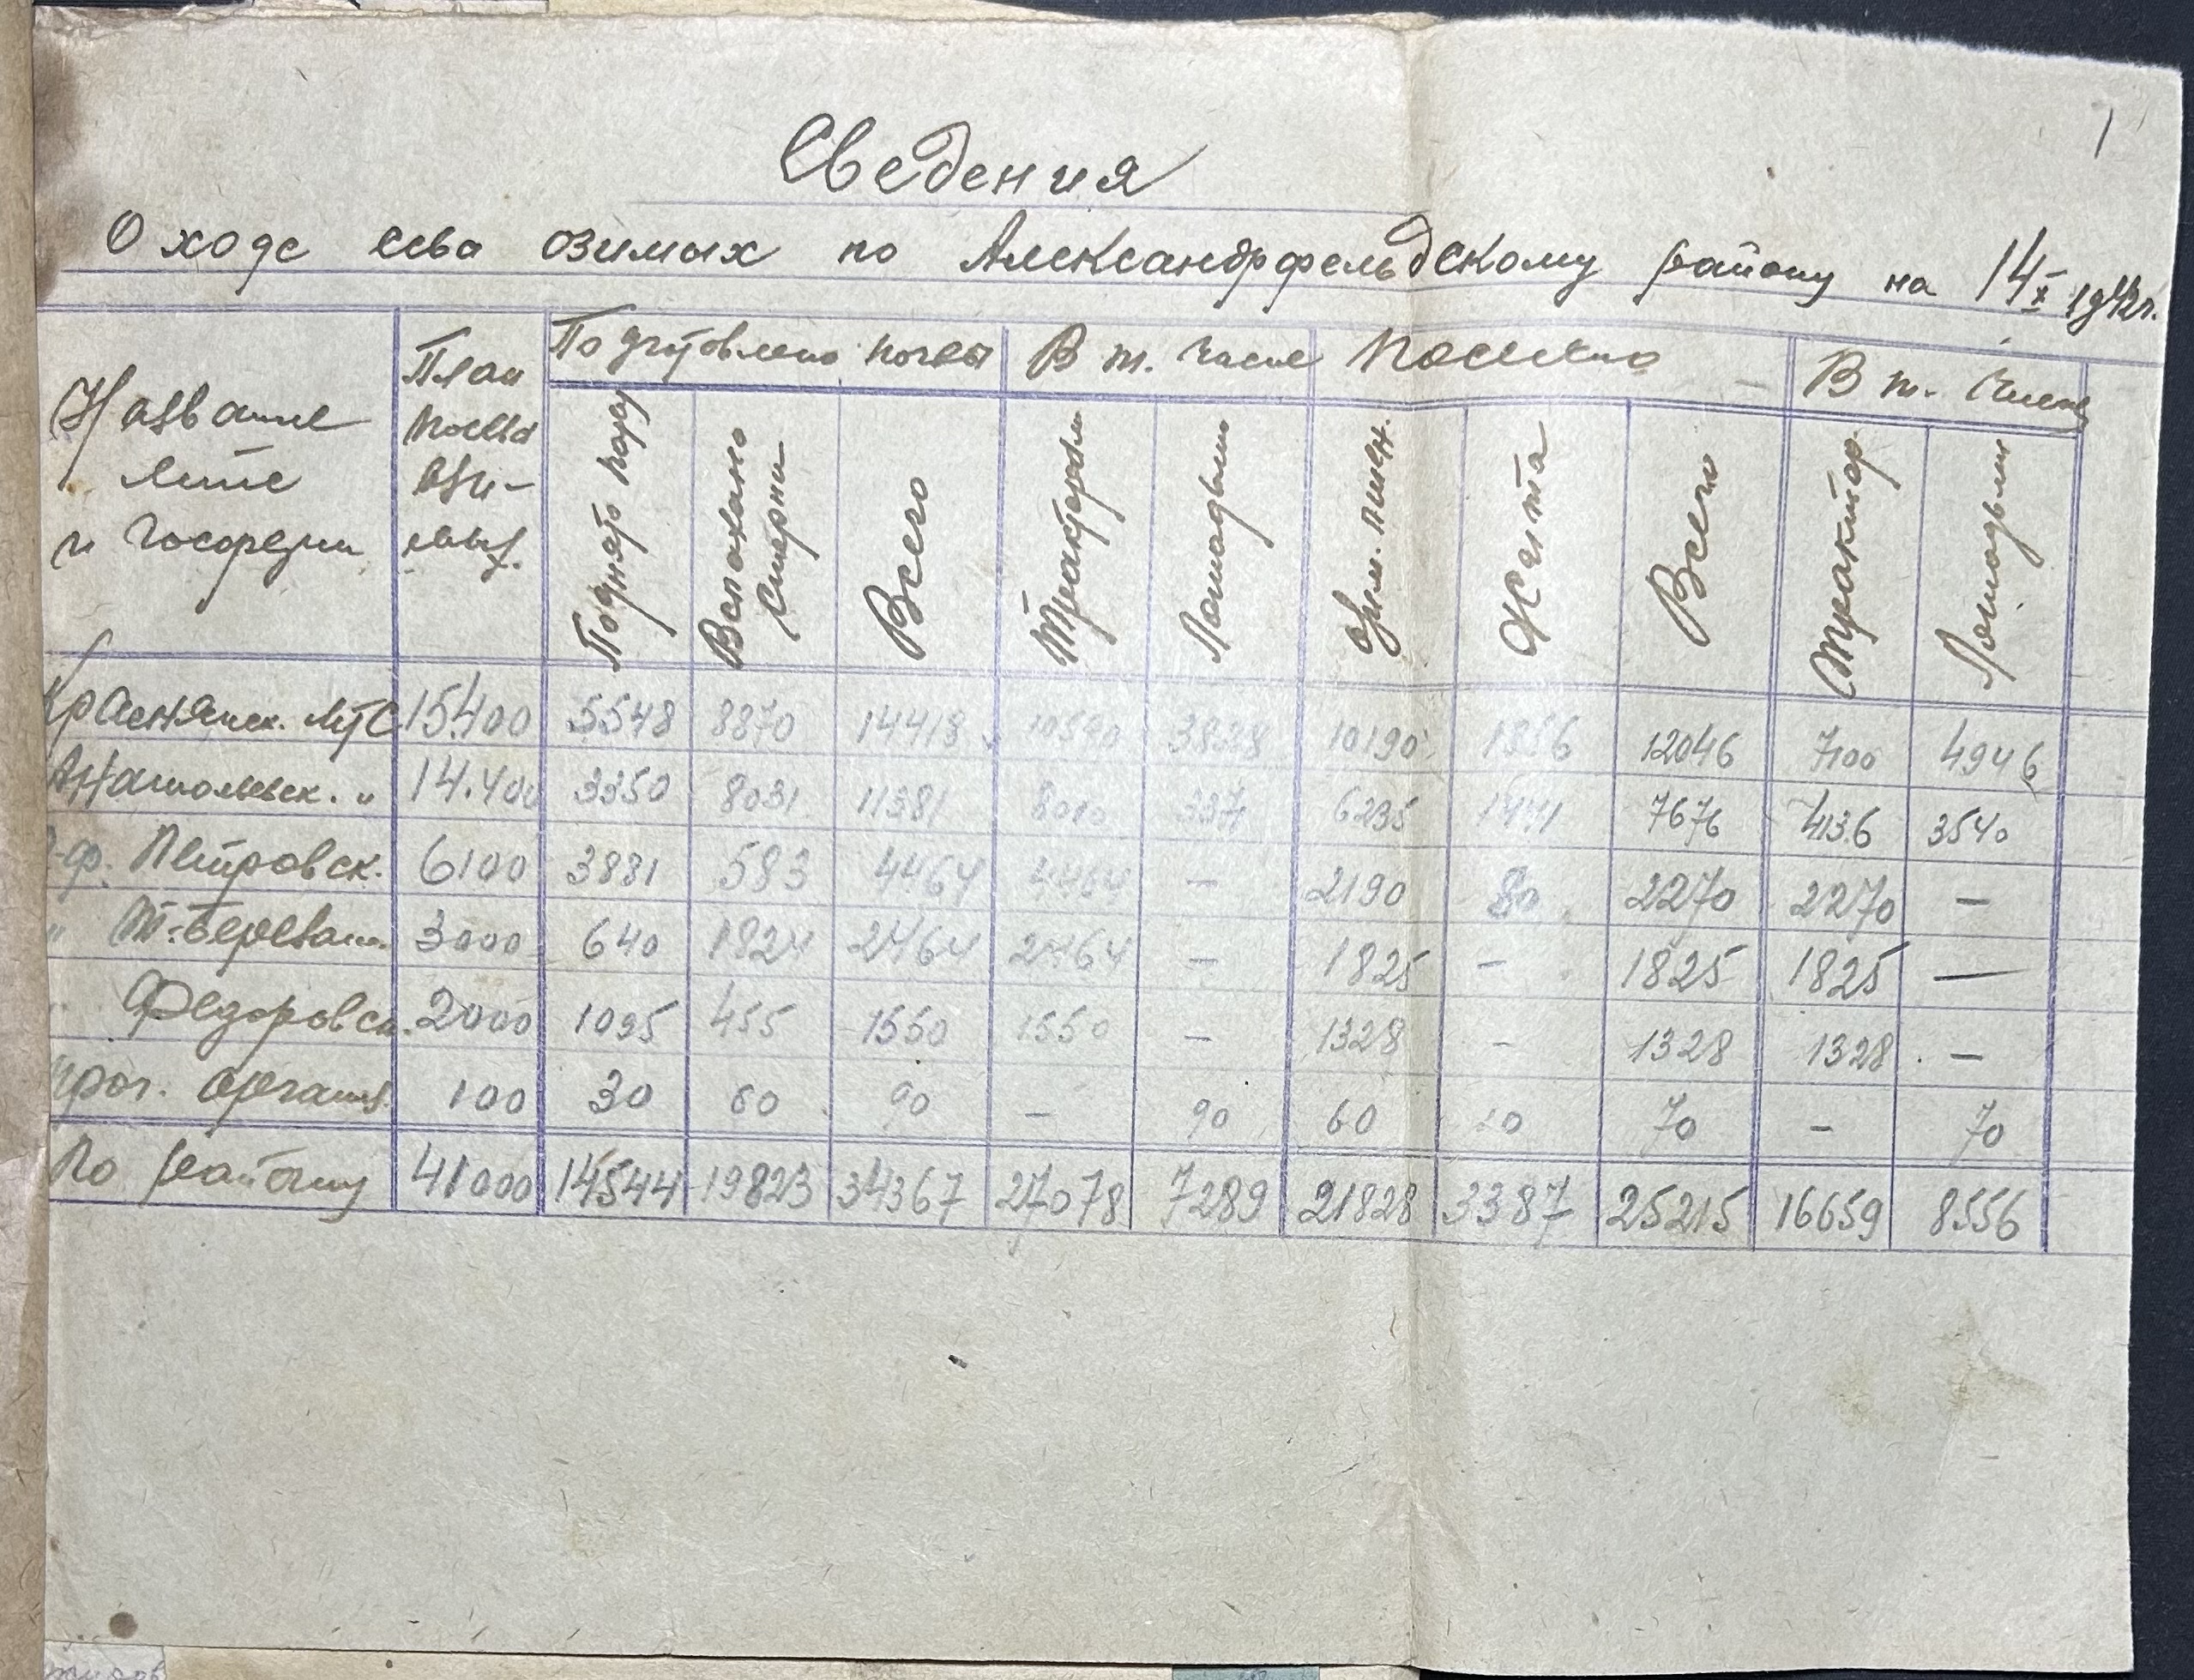 1
Сведения
О ходе сева озимых по Александрфельдскому району на 14 X 1942 г.
Название мтс и госферм
План посева озимых.
Подготовлено почвы
В т. числе
Посеяно
В т. числе
Поднято пару
Вспахано стерни
Всего
Тракторами
Лошадьми
озим. пшен.
Жита
Всего
Трактор.
Лошадьми
Краснянск. МТС 15400 5548 8870 14418 10590 3828 10190 1856 12046 7100 4946
Анатольевск. " 14.400 3350 8031 11381 8010 3371 6235 1441 7676 4136 3540
г-ф. Петровск. 6100 3881 583 4464 4464 – 2190 80 2270 2270 –
" Т-Березан. 3000 640 1824 2464 2464 – 1825 – 1825 1825 –
" Федоровск. 2000 1095 455 1550 1550 – 1328 – 1328 1328 –
Проч. организ. 100 30 60 90 – 90 60 10 70 – 70
По району 41000 14544 19823 34367 27078 7289 21828 3387 25215 16659 8556